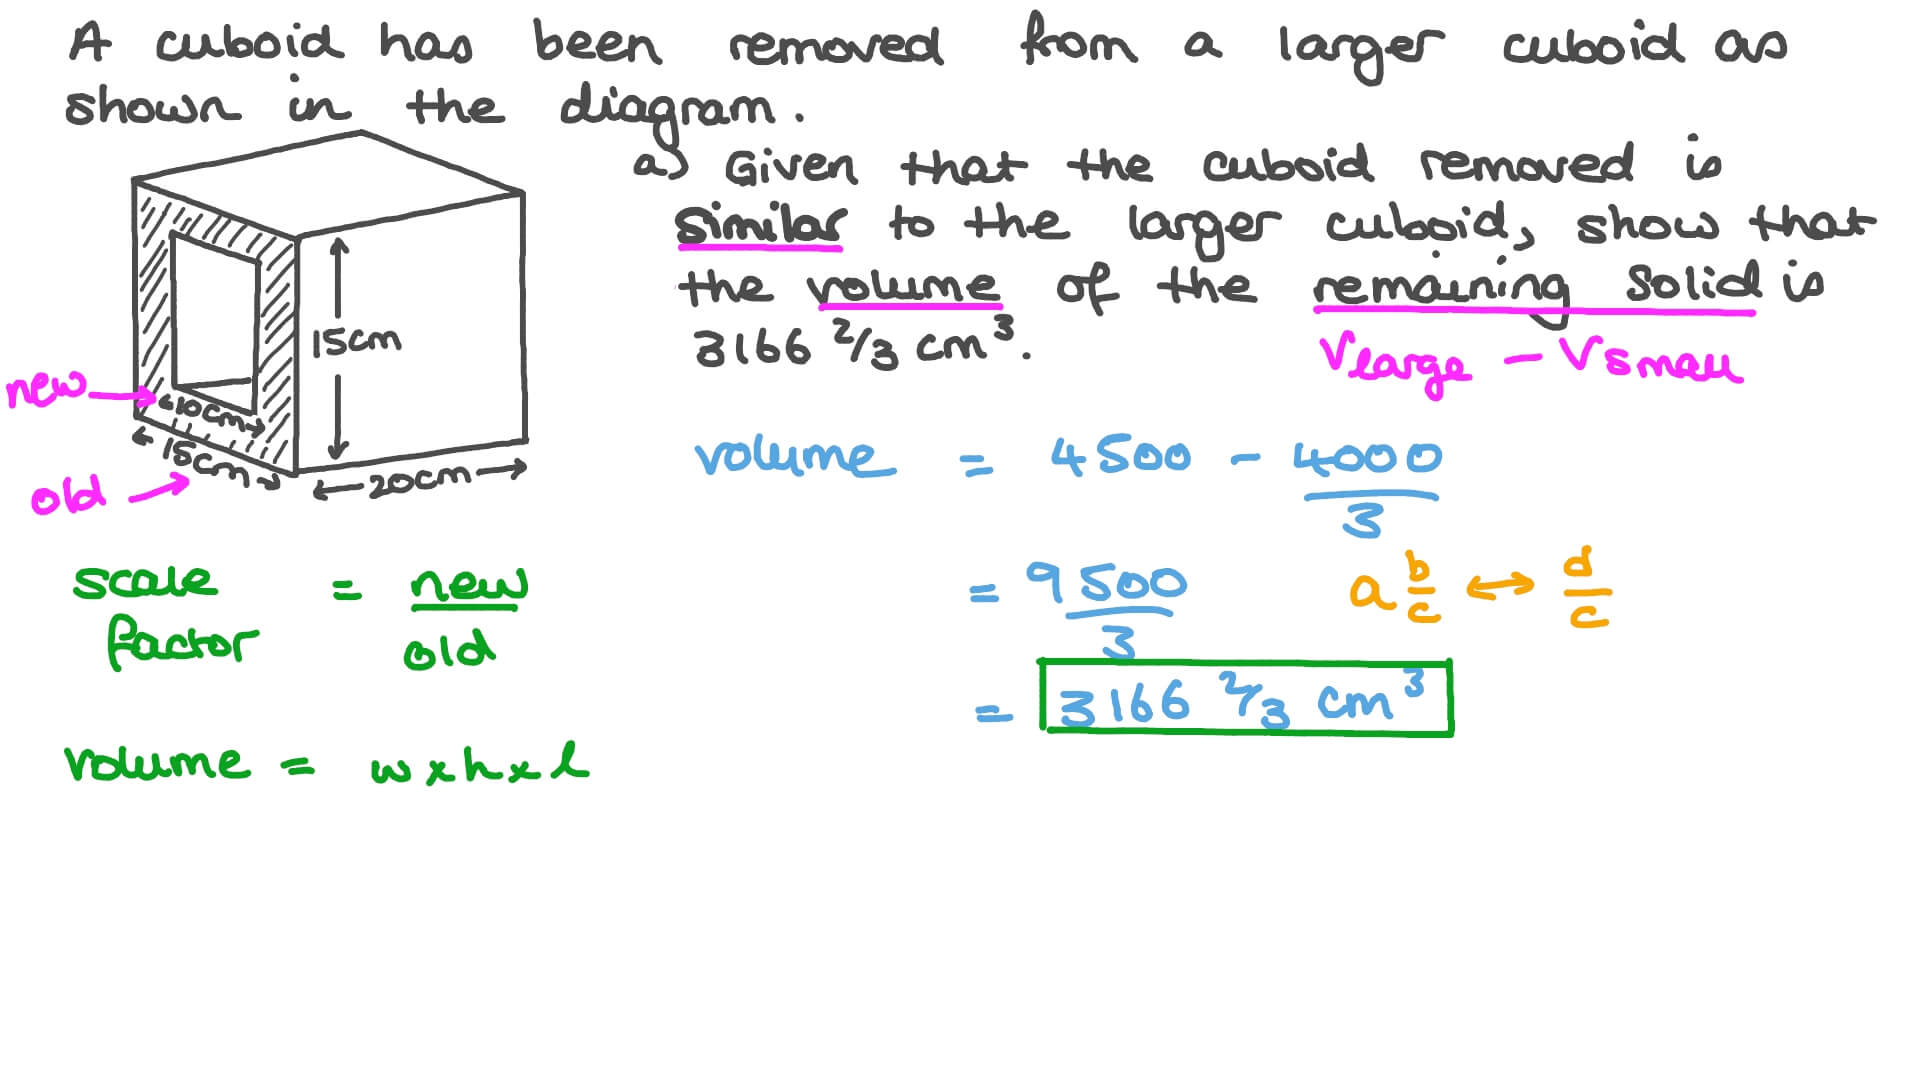 A cuboid has been removed from a larger cuboid as
shown in the diagram.
a) Given that the cuboid removed is
similar to the larger cuboid, show that
the volume of the remaining solid is
3166 2/3 cm³.
Vlarge - Vsmall
15cm
new
10cm
15cm
20cm
old
volume = 4500 - 4000/3
= 9500/3
a b/c ↔ d/c
= 3166 2/3 cm³
scale factor = new/old
volume = w x h x l